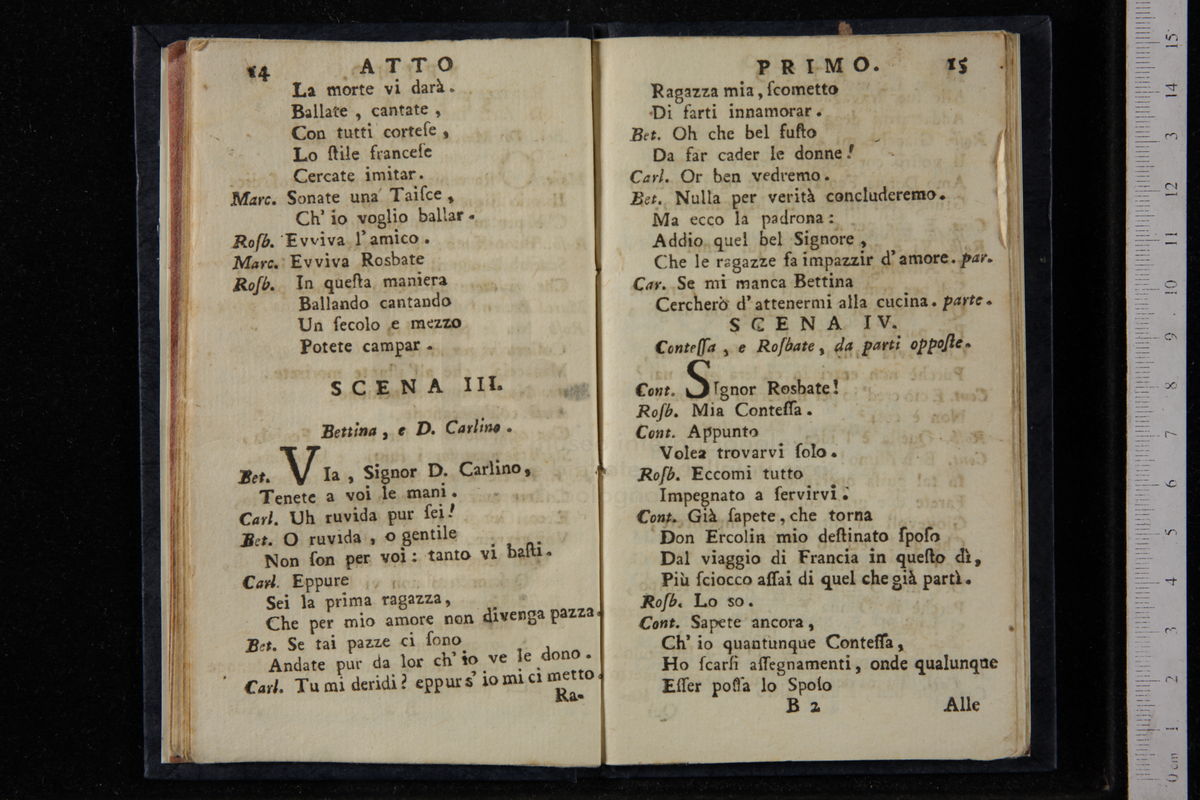 14 ATTO
La morte vi darà.
Ballate , cantate ,
Con tutti corteſe ,
Lo ſtile franceſe
Cercate imitar.
Marc. Sonate una Taiſce ,
Ch' io voglio ballar.
Roſb. Evviva l'amico.
Marc. Evviva Rosbate
Roſb. In queſta maniera
Ballando cantando
Un ſecolo e mezzo
Potete campar.
SCENA III.
Bettina , e D. Carlino.
Bet. VIa , Signor D. Carlino,
Tenete a voi le mani.
Carl. Uh ruvida pur ſei!
Bet. O ruvida , o gentile
Non ſon per voi: tanto vi baſti.
Carl. Eppure
Sei la prima ragazza,
Che per mio amore non divenga pazza.
Bet. Se tai pazze ci ſono
Andate pur da lor ch' io ve le dono.
Carl. Tu mi deridi? eppur s' io mi ci metto.
Ra-
PRIMO. 15
Ragazza mia, ſcometto
Di farti innamorar.
Bet. Oh che bel fuſto
Da far cader le donne!
Carl. Or ben vedremo.
Bet. Nulla per verità concluderemo.
Ma ecco la padrona:
Addio quel bel Signore,
Che le ragazze fa impazzir d'amore. par.
Car. Se mi manca Bettina
Cercherò d'attenermi alla cucina. parte.
SCENA IV.
Conteſſa , e Roſbate, da parti oppoſte.
Cont. SIgnor Rosbate!
Roſb. Mia Conteſſa.
Cont. Appunto
Volea trovarvi ſolo.
Roſb. Eccomi tutto
Impegnato a ſervirvi.
Cont. Già ſapete, che torna
Don Ercolin mio deſtinato ſpoſo
Dal viaggio di Francia in queſto dì,
Più ſciocco aſſai di quel che già partì.
Roſb. Lo so.
Cont. Sapete ancora,
Ch' io quantunque Conteſſa,
Ho ſcarſi aſſegnamenti, onde qualunque
Eſſer poſſa lo Spoſo
B 2 Alle
0 cm 1 2 3 4 5 6 7 8 9 10 11 12 13 14 15